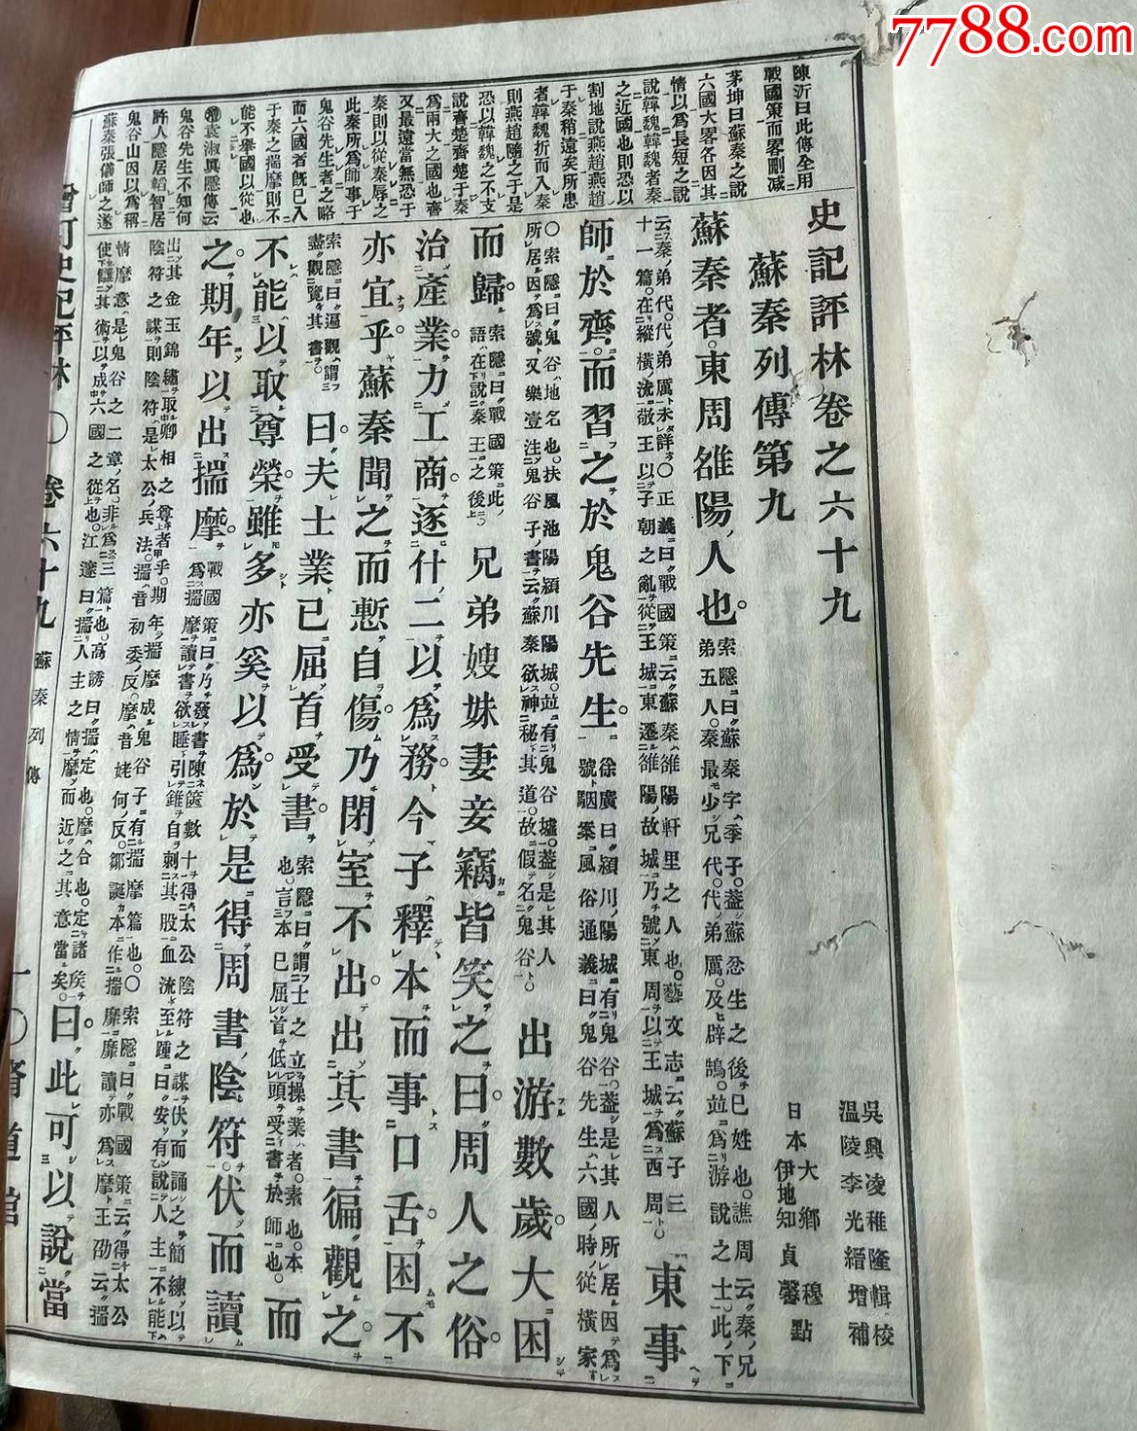 7788.com
陳沂曰此傳全用
戰國策而畧刪减
茅坤曰蘇秦之說
六國大畧各因其
情以爲長短之說
說韓魏韓魏者秦
之近國也則恐以
割地說燕趙燕趙
于秦稍遠矣所患
者韓魏折而入秦
則燕趙隨之于是
恐以韓魏之不支
說齊楚齊楚于秦
爲兩大之國也齊
又最遠當無恐于
秦則以從秦辱之
此秦所爲師事于
鬼谷先生者之略
而六國者旣已入
于秦之揣摩則不
能不舉國以從也
袁淑眞隱傳云
鬼谷先生不知何
許人隱居韜智居
鬼谷山因以爲稱
蘇秦張儀師之遂
史記評林卷之六十九
吳興凌稚隆輯校
溫陵李光縉增補
蘇秦列傳第九
日本大鄉穆
伊地知貞馨點
蘇秦者東周雒陽人也
索隱曰蘇秦字季子蓋蘇忿生之後已姓也譙周云秦兄
弟五人秦最少兄代代弟厲及辟鵠並爲游說之士此下
云秦弟代代弟厲未詳〇正義曰戰國策云蘇秦雒陽軒里之人也藝文志云蘇子三
十一篇在縱橫流敬王以子朝之亂從王城東遷雒陽故城乃號東周以王城爲西周
東事
師於齊而習之於鬼谷先生
徐廣曰潁川陽城有鬼谷蓋是其人所居因爲
號駰案風俗通義曰鬼谷先生六國時從橫家
〇索隱曰鬼谷地名也扶風池陽潁川陽城並有鬼谷墟蓋是其人
所居因爲號又樂壹注鬼谷子書云蘇秦欲神秘其道故假名鬼谷
出游數歲大困
而歸
索隱曰戰國策此
語在說秦王之後
兄弟嫂妹妻妾竊皆笑之曰周人之俗
治產業力工商逐什二以爲務今子釋本而事口舌困不
亦宜乎蘇秦聞之而慙自傷乃閉室不出出其書徧觀之
索隱曰遍觀謂
盡觀覽其書
曰夫士業已屈首受書
索隱曰謂士之立操業者素也本
也言本已屈首低頭受書於師也
而
不能以取尊榮雖多亦奚以爲於是得周書陰符伏而讀
之期年以出揣摩
戰國策曰乃發書陳篋數十得太公陰符之謀伏而誦之簡練以
爲揣摩讀書欲睡引錐自刺其股血流至踵曰安有說人主不能
出其金玉錦繡取卿相之尊者乎期年揣摩成鬼谷子有揣摩篇也〇索隱曰戰國策云得太公
陰符之謀則陰符是太公兵法揣音初委反摩音姥何反鄒誕本作揣靡靡讀亦爲摩王劭云揣
情摩意是鬼谷之二章名非爲三篇也高誘曰揣定也摩合也定諸矦
使讎其術以成六國之從也江邃曰揣人主之情摩而近之其意當矣
曰此可以說當
卷六十九
蘇秦列傳